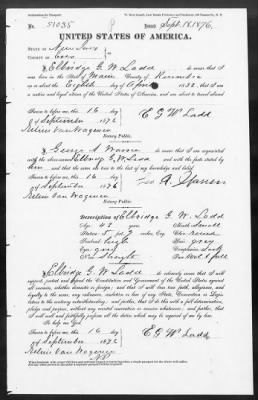 No. 51035
Issued Sept. 18, 1876.
UNITED STATES OF AMERICA.
STATE OF New Jersey
COUNTY OF Essex
I, Elbridge G. W. Ladd do swear that I
was born in the of Maine County of
on or about the Eighth day of April 1832, that I am
a native and loyal citizen of the United States, and am about to travel abroad.
Sworn to before me this 16 day
of September 1876
E G W Ladd
Notary Public.
I, George A. do swear that I am acquainted
with the above-named Elbridge G. W. Ladd and with the facts stated by
him, and that the same are true to the best of my knowledge and belief.
Sworn to before me this 16 day
of September 1876
Notary Public.
Description of Elbridge G. W. Ladd
Age: 42 years
Mouth: Small
Stature: 5 feet 9 inches, Eng.
Chin: Round
Forehead: high
Hair: grey
Eyes: grey
Complexion:
Nose: Straight
Face: full
I, Elbridge G. W. Ladd do solemnly swear that I will
support, protect and defend the Constitution and Government of the United States against
all enemies, whether domestic or foreign; and that I will bear true faith, allegiance, and
loyalty to the same, any ordinance, resolution or law of any State, Convention or Legislature
to the contrary notwithstanding; and further, that I do this with a full determination,
pledge and purpose, without any mental reservation or evasion whatsoever; and further, that
I will well and faithfully perform all the duties which may be required of me by law.
So help me God.
Sworn to before me this 16 day
of September 1876
E G W Ladd